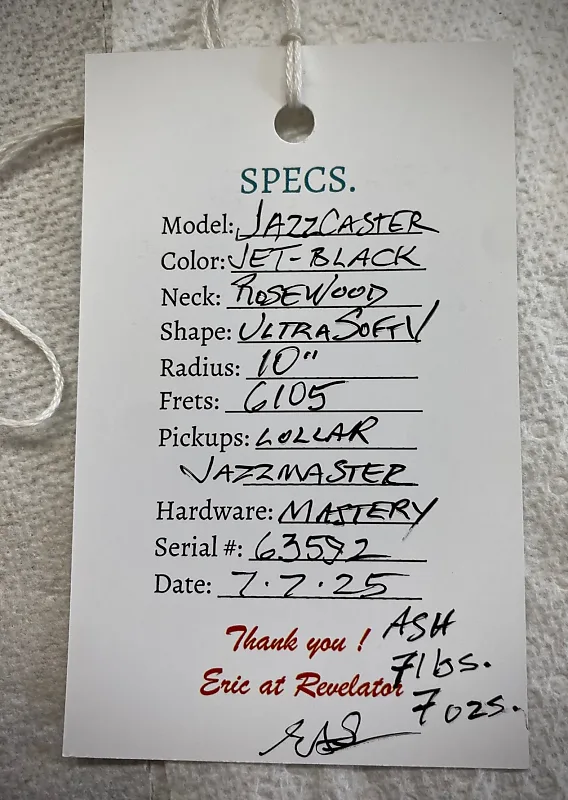 SPECS.
Model: JAZZCASTER
Color: JET-BLACK
Neck: ROSEWOOD
Shape: ULTRA SOFT V
Radius: 10"
Frets: 6105
Pickups: LOLLAR
JAZZMASTER
Hardware: MASTERY
Serial #: 63592
Date: 7.7.25
Thank you ! ASH
7lbs.
Eric at Revelator
7 ozs.